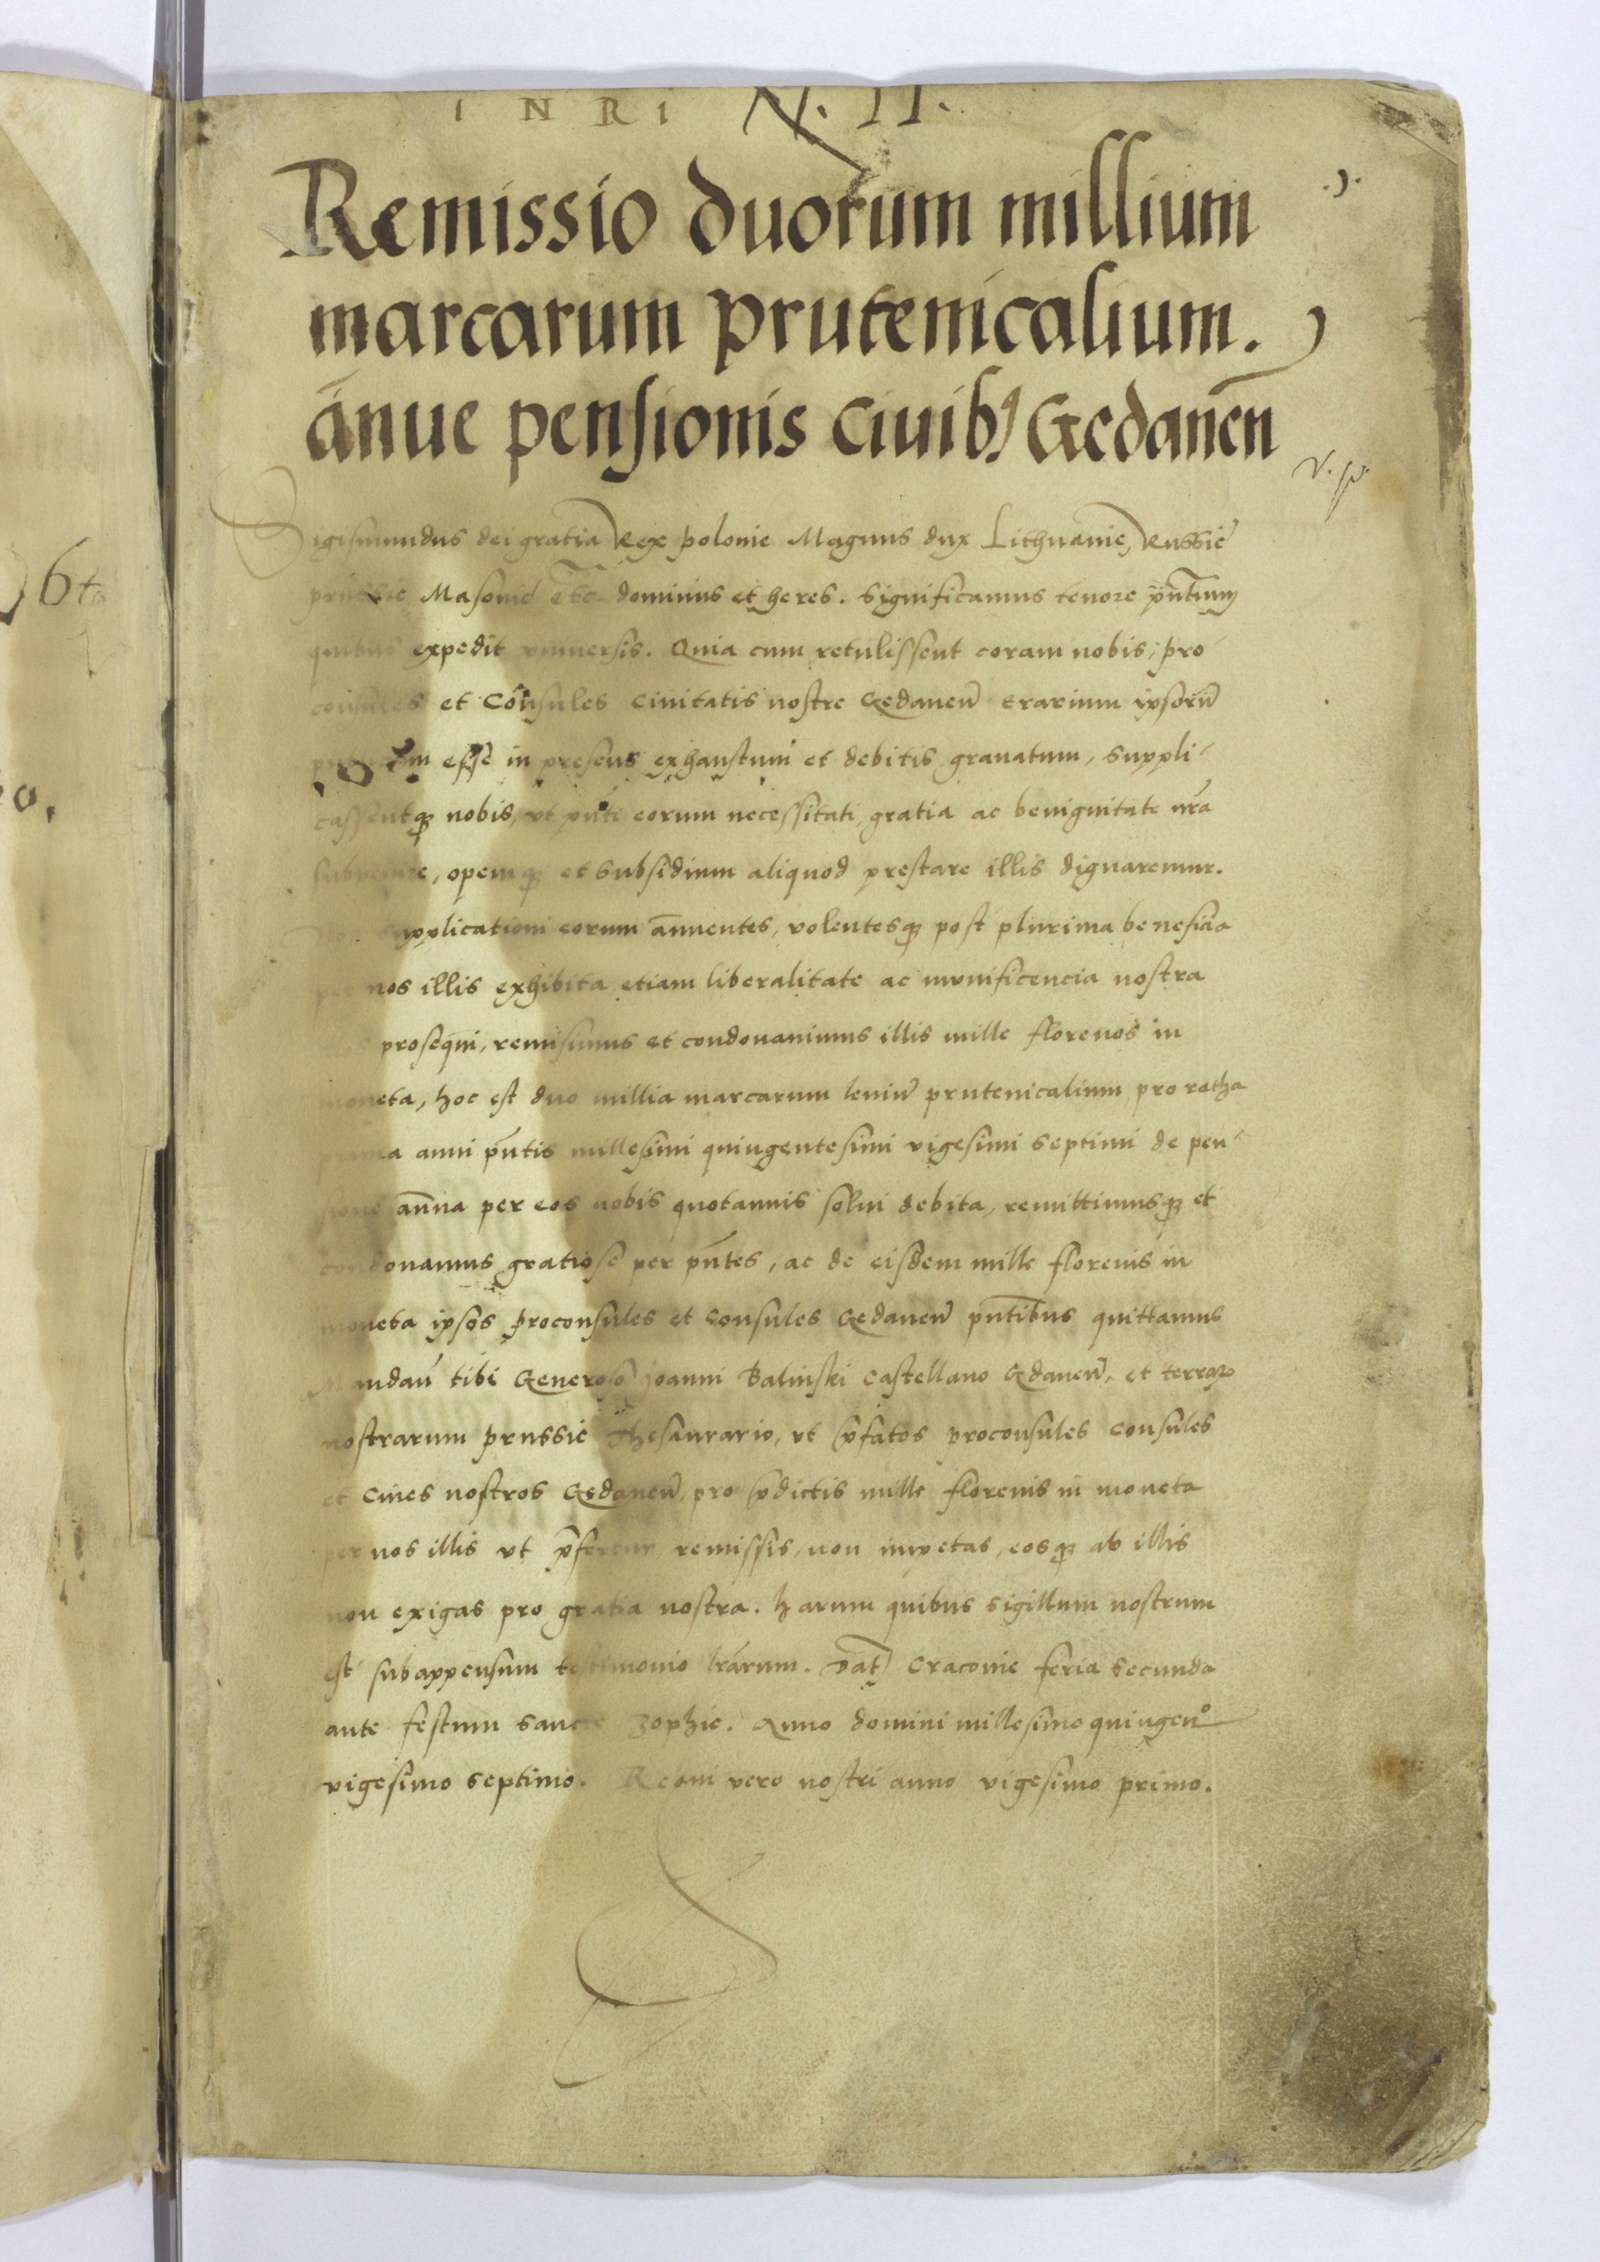 I N R I N. II.
.).
Remissio duorum millium
marcarum prutenicalium.
ānue pensionis Ciuibꝰ Gedanen̄
V. sp.
Sigismundus dei gratia Rex polonie Magnus dux Lithuanie, Russie
prussie Masouie etc dominus et heres. Significamus tenore pn̄tium
quibus expedit vniuersis. Quia cum retulissent coram nobis, pro
consules et Consules Ciuitatis nostre Gedanen̄ Erarium ipsorū
esse in presens exhaustum et debitis grauatum, suppli-
cassentqȝ nobis, vt pn̄ti eorum necessitati, gratia ac benignitate nr̄a
subuenire, opemqȝ et subsidium aliquod prestare illis dignaremur.
Nos supplicationi eorum ānuentes, volentesqȝ post plurima beneficia
per nos illis exhibita etiam liberalitate ac munificencia nostra
prosequi, remisimus et condonauimus illis mille florenos in
moneta, hoc est duo millia marcarum leuiū prutenicalium pro ratha
prima anni pn̄tis millesimi quingentesimi vigesimi septimi de pen-
sione ānua per eos nobis quotannis solui debita, remittimusqȝ et
condonamus gratiose per pn̄tes, ac de eisdem mille florenis in
moneta ipsos proconsules et Consules Gedanen̄ pn̄tibus quittamus
Mandan̄ tibi Generoso Joanni Balinski Castellano Gdanen̄, et terraꝝ
nostrarum prussie Thesaurario, vt p̄fatos proconsules Consules
et Ciues nostros Gedanen̄, pro p̄dictis mille florenis in moneta
per nos illis vt p̄fertur remissis, non impetas, eosqȝ ab illis
non exigas pro gratia nostra. harum quibus sigillum nostrum
est subappensum testimonio lr̄arum. Dat̄ Cracouie feria secunda
ante festum sancte Zophie. Anno domini millesimo quingenᵒ
vigesimo septimo. Regni vero nostri anno vigesimo primo.
6ta
o,